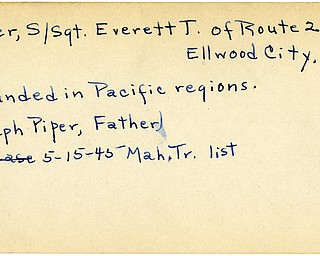 er, S/Sgt. Everett T. of Route 2
Ellwood City,
unded in Pacific regions.
ph Piper, Father
ase 5-15-45 Mah, Tr. list